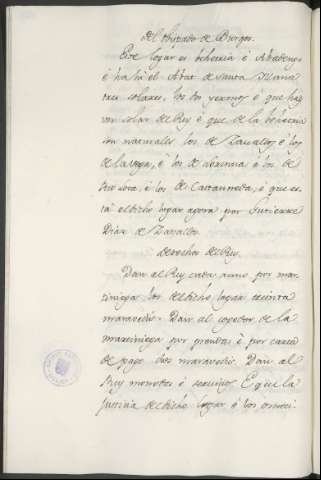 del Obispado de Burgos.
Este logar es behetria é Abadengo
é ha hi el Abat de Santa Maria
tres solares, los dos yermos é que hay
un solar de Rey é que de la behetria
son naturales los de Zavallos é los
de la Vega, é los de é los de
é los de Castañeda, é que es-
tá el dicho logar agora por Gutierre
Diaz de Zavallos.
derechos del Rey.
Dan al Rey cada anno por mar-
ziniega los del dicho logar treinta
maravedis. Dan al cogedor de la
marziniega por prendas é por carta
de pago dos maravedis. Dan al
Rey monedas é servicios. E que la
justicia del dicho logar é los omeci-